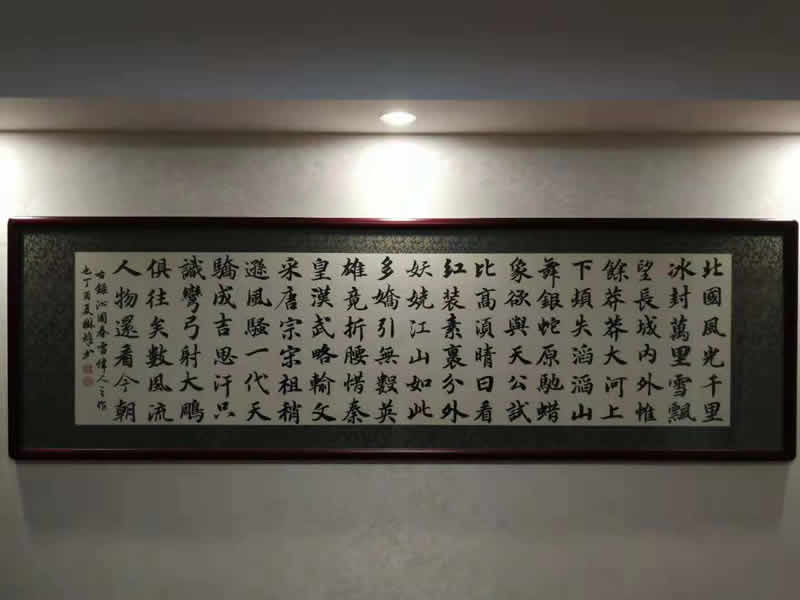 北國風光千里
冰封萬里雪飄
望長城内外惟
餘莽莽大河上
下頓失滔滔山
舞銀蛇原馳蜡
象欲與天公試
比高須晴日看
紅裝素裹分外
妖娆江山如此
多嬌引無數英
雄竟折腰惜秦
皇漢武略輸文
采唐宗宋祖稍
遜風騷一代天
驕成吉思汗只
識彎弓射大鵰
俱往矣數風流
人物還看今朝
右錄沁園春雪偉人之作
也丁酉夏